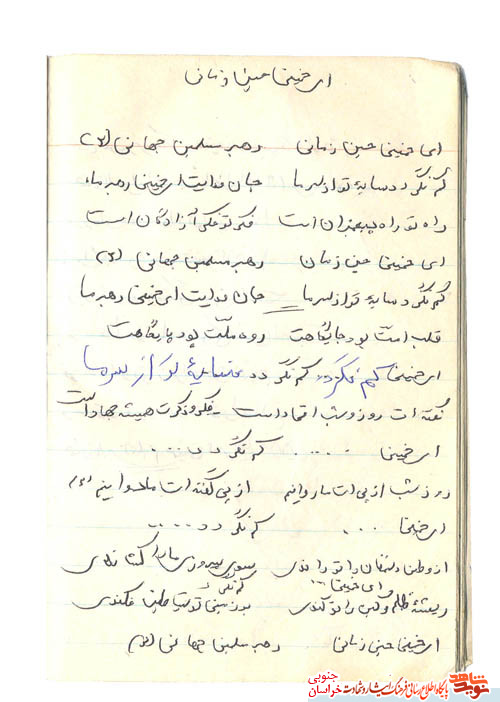 ای خمینی حسین زمانی
ای خمینی حسین زمانی رهبر مسلمین جهانی (۲)
کم نگردد سایه تو از سر ما جان فدایت ای خمینی رهبر ما
راه تو راه پیغمبران است فکر تو فکر آزادگان است
ای خمینی حسین زمان رهبر مسلمین جهانی (۲)
کم نگردد سایه تو از سر ما جان فدایت ای خمینی رهبر ما
قلب امت بود جایگاهت روح ملت بود پایگاهت
ای خمینی کم نگردد کم نگردد سایهٔ تو از سر ما
گفته ات روز و شب اتحاد است فکر و ذکرت همیشه جهاد است
ای خمینی ..... کم نگردد ....
روز و شب از پی ات ما روانیم از پی گفته ات ما دوانیم (۲)
ای خمینی ... کم نگردد .....
از وطن دشمنان را تو راندی سوی پیروزی ما را کشاندی
ای خمینی ... کم نگردد
ریشهٔ ظلم و کین را تو کندی
ای خمینی حسین زمانی رهبر مسلمین جهانی (۲)
نوید شاهد
پایگاه اطلاع رسانی فرهنگ ایثار و شهادت خراسان جنوبی